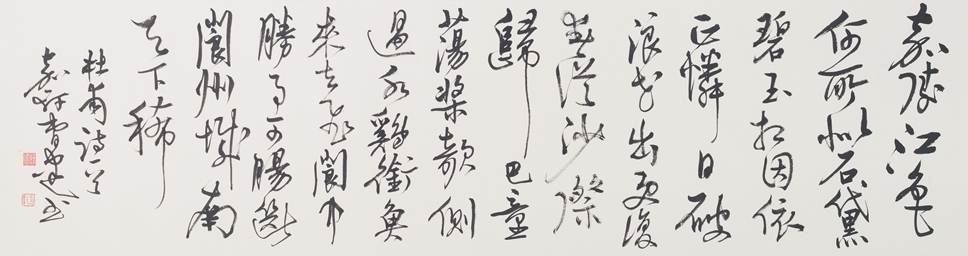 嘉陵江色
何所似石黛
碧玉相因依
正憐日破
浪花出更復
春從沙際
歸巴童
蕩槳欹側
過水鷄銜魚
來去飛閬中
勝事可腸斷
閬州城南
天下稀
杜甫詩一首